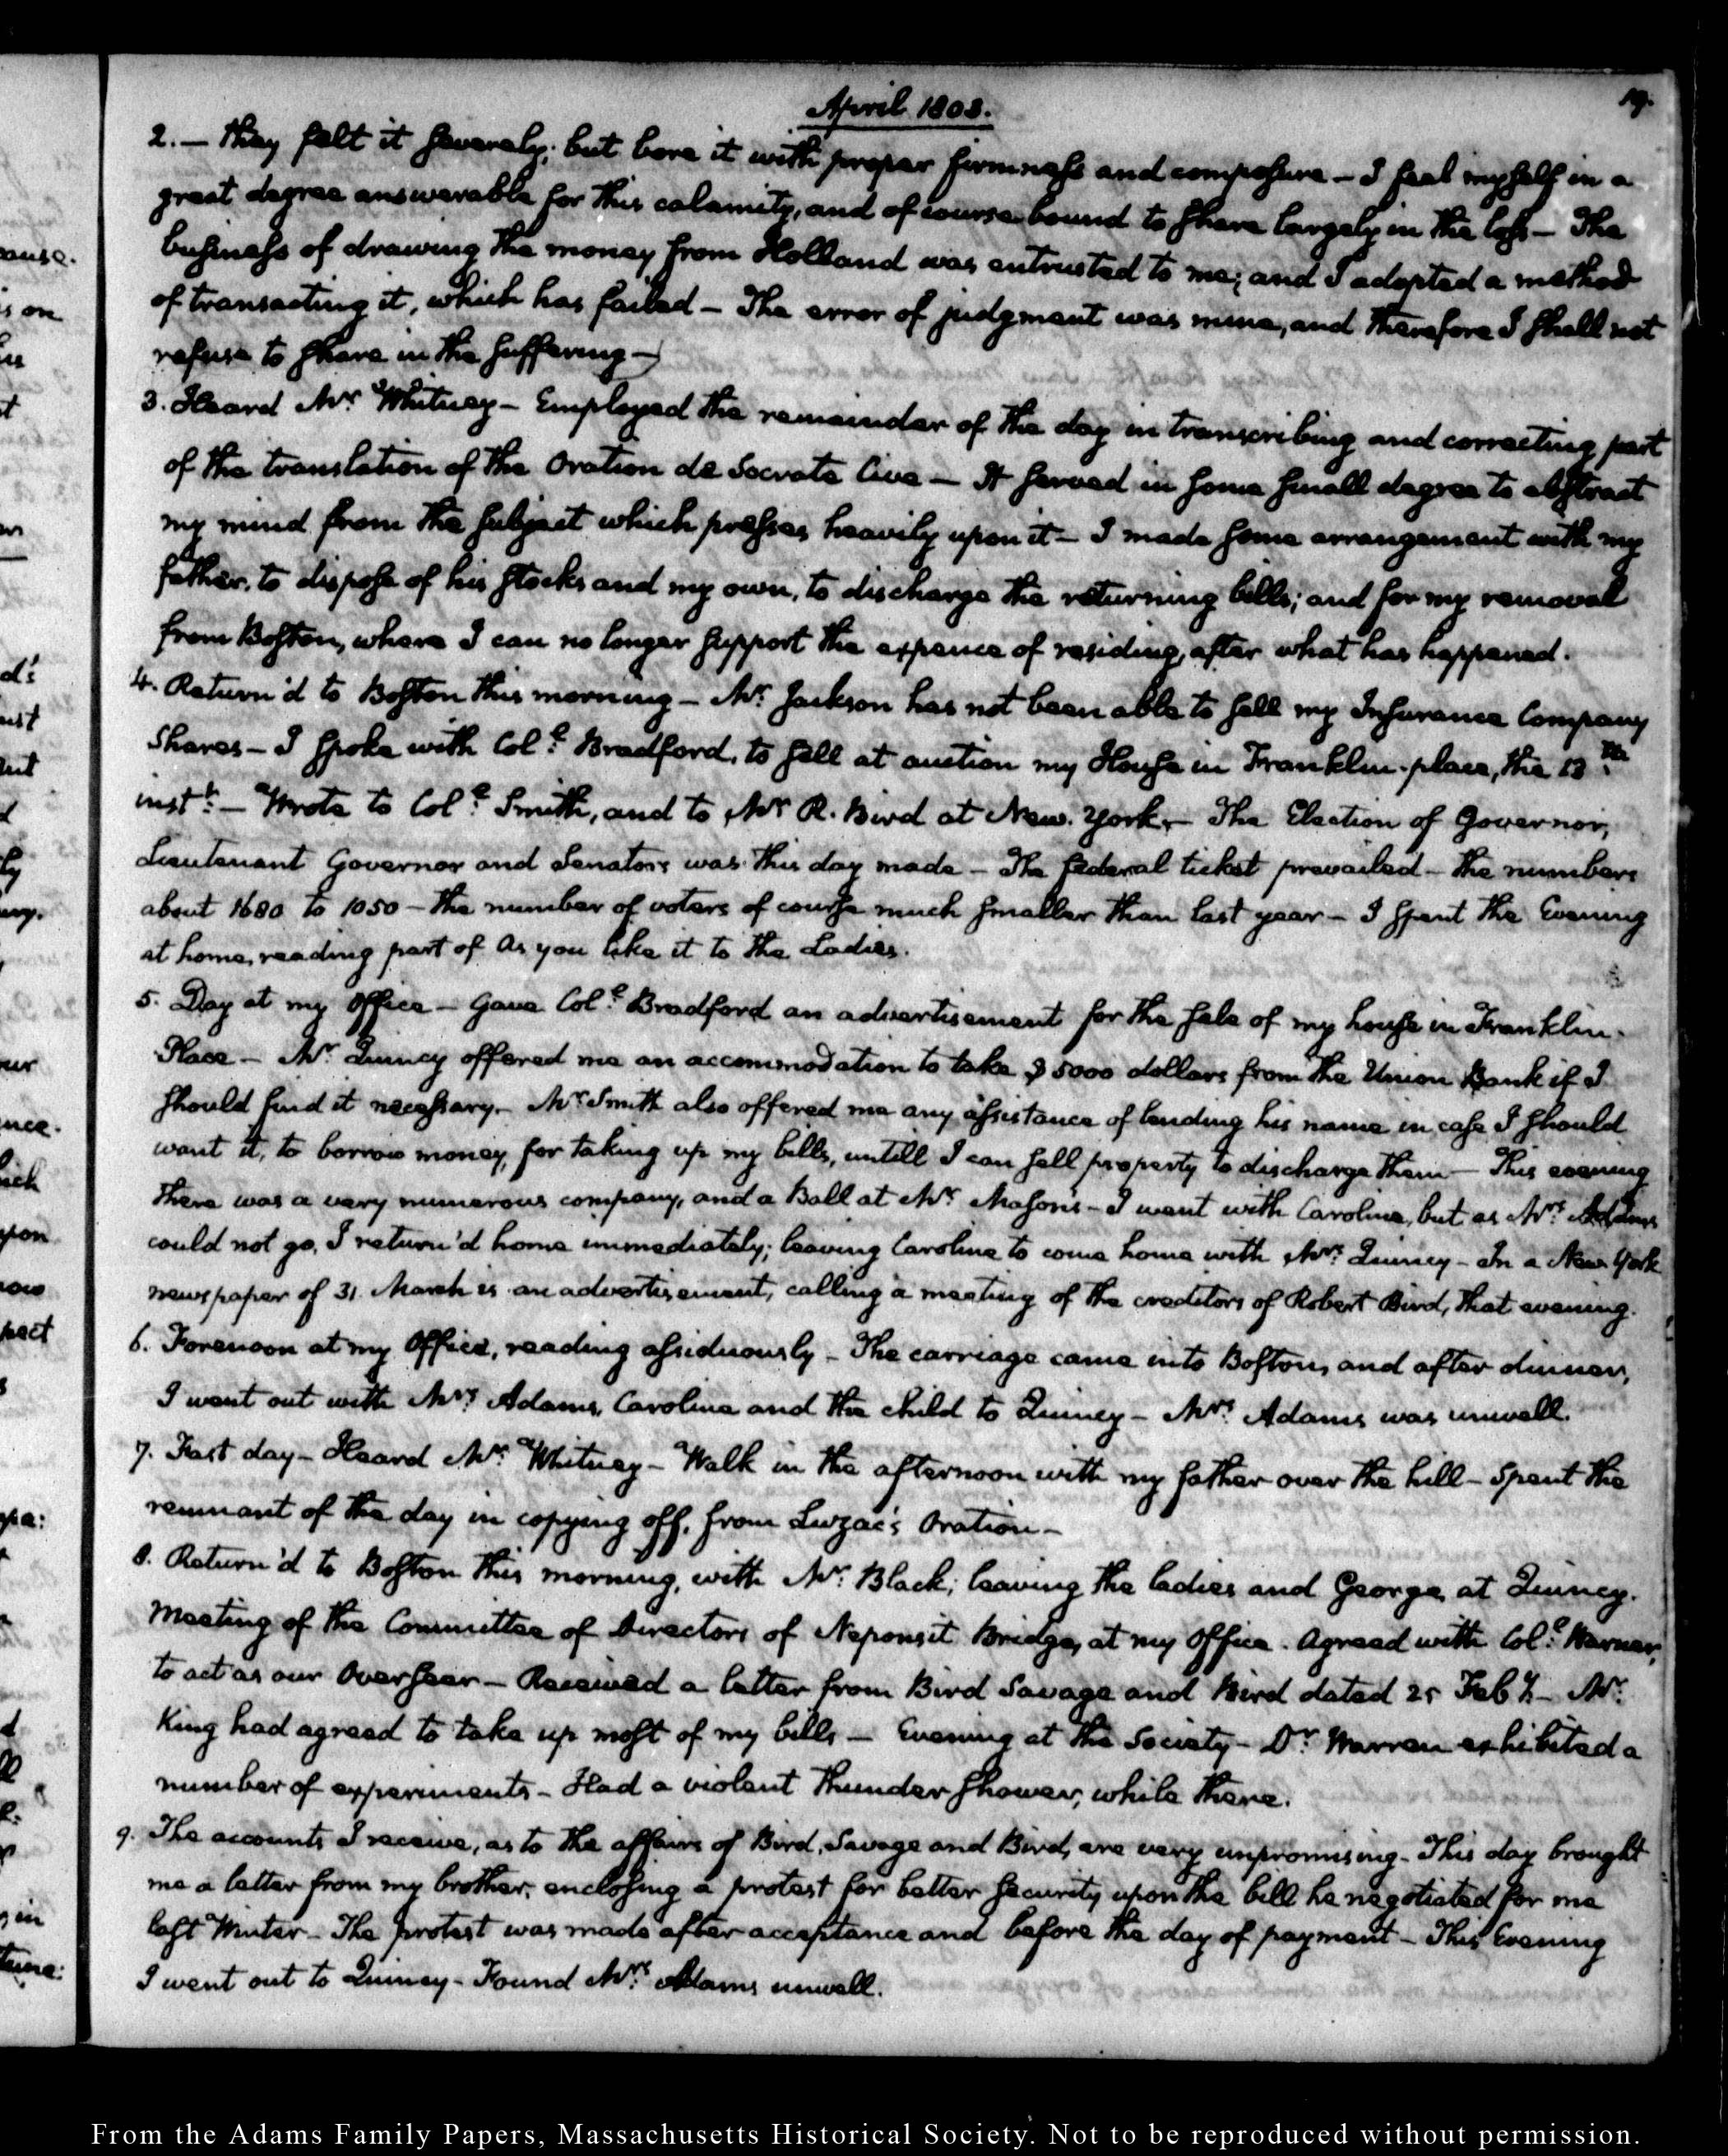 April 1803.
19.
2. — they felt it severely; but bore it with proper firmness and composure — I feel myself in a
great degree answerable for this calamity, and of course bound to share largely in the loss — The
business of drawing the money from Holland was entrusted to me; and I adopted a method
of transacting it, which has failed — The error of judgment was mine, and therefore I shall not
refuse to share in the suffering —
3. Heard Mr. Whitney — Employed the remainder of the day in transcribing and correcting part
of the translation of the Oration de Socrate Cive — It served in some small degree to abstract
my mind from the subject which presses heavily upon it — I made some arrangement with my
father, to dispose of his stocks and my own, to discharge the returning bills; and for my removal
from Boston, where I can no longer support the expence of residing, after what has happened.
4. Return'd to Boston this morning — Mr. Jackson has not been able to sell my Insurance Company
Shares — I spoke with Coll. Bradford, to sell at auction my House in Franklin-place, the 13th
instt. — Wrote to Coll. Smith, and to Mr R. Bird at New-York. — The Election of Governor,
Lieutenant Governor and Senators was this day made — The federal ticket prevailed — the numbers
about 1680 to 1050 — the number of voters of course much smaller than last year — I spent the Evening
at home, reading part of As you like it to the Ladies.
5. Day at my Office — Gave Coll. Bradford an advertisement for the sale of my house in Franklin-
Place — Mr. Quincy offered me an accommodation to take $ 5000 dollars from the Union Bank if I
should find it necessary. Mr. Smith also offered me any assistance of lending his name in case I should
want it, to borrow money, for taking up my bills, untill I can sell property to discharge them — This evening
there was a very numerous company, and a Ball at Mr. Mason's — I went with Caroline, but as Mrs. Adams
could not go, I return'd home immediately; leaving Caroline to come home with Mrs. Quincy — In a New-York
newspaper of 31. March is an advertisement, calling a meeting of the creditors of Robert Bird, that evening.
6. Forenoon at my Office, reading assiduously — The carriage came into Boston, and after dinner,
I went out with Mrs. Adams, Caroline and the child to Quincy — Mrs. Adams was unwell.
7. Fast day — Heard Mr. Whitney — Walk in the afternoon with my father over the hill — Spent the
remnant of the day in copying off, from Luzac's Oration —
8. Return'd to Boston this morning, with Mr. Black; leaving the ladies and George, at Quincy.
Meeting of the Committee of Directors of Neponsit Bridge, at my Office. Agreed with Coll. Warner,
to act as our Overseer — Received a letter from Bird Savage and Bird dated 25 Feby. — Mr.
King had agreed to take up most of my bills — Evening at the Society — Dr. Warren exhibited a
number of experiments — Had a violent thunder shower, while there.
9. The accounts I receive, as to the affairs of Bird, Savage and Bird, are very unpromising — This day brought
me a letter from my brother, enclosing a protest for better security upon the bill he negotiated for me
last Winter — The protest was made after acceptance and before the day of payment — This Evening
I went out to Quincy — Found Mrs. Adams unwell.
From the Adams Family Papers, Massachusetts Historical Society. Not to be reproduced without permission.